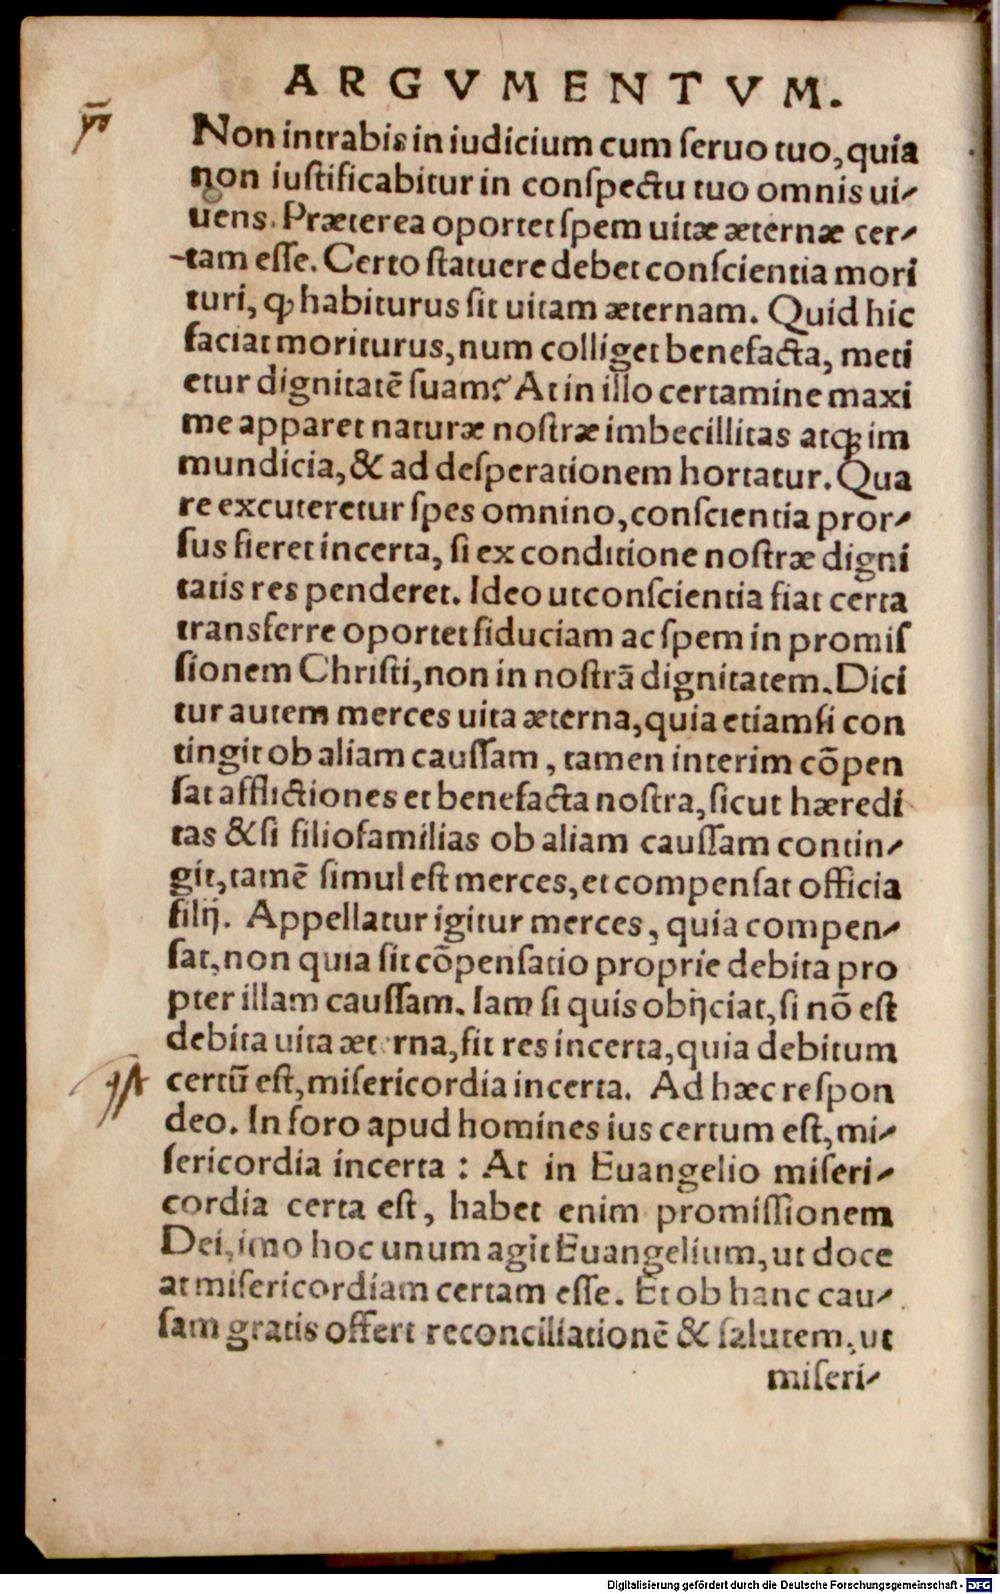 ARGVMENTVM.
Non intrabis in iudicium cum ſeruo tuo, quia
non iuſtificabitur in conſpectu tuo omnis ui-
uens. Præterea oportet ſpem uitæ æternæ cer-
tam eſſe. Certo ſtatuere debet conſcientia mori
turi, ꝙ habiturus ſit uitam æternam. Quid hic
faciat moriturus, num colliget benefacta, meti
etur dignitatē ſuam? At in illo certamine maxi
me apparet naturæ noſtræ imbecillitas atqꝫ im
mundicia, & ad deſperationem hortatur. Qua
re excuteretur ſpes omnino, conſcientia pror-
ſus fieret incerta, ſi ex conditione noſtræ digni
tatis res penderet. Ideo ut conſcientia fiat certa
transferre oportet fiduciam ac ſpem in promiſ
ſionem Chriſti, non in noſtrā dignitatem. Dici
tur autem merces uita æterna, quia etiamſi con
tingit ob aliam cauſſam, tamen interim cōpen
ſat afflictiones et benefacta noſtra, ſicut hæredi
tas & ſi filiofamilias ob aliam cauſſam contin-
git, tamē ſimul eſt merces, et compenſat officia
filij. Appellatur igitur merces, quia compen-
ſat, non quia ſit cōpenſatio proprie debita pro
pter illam cauſſam. Iam ſi quis obijciat, ſi nō eſt
debita uita æterna, fit res incerta, quia debitum
certū eſt, miſericordia incerta. Ad hæc reſpon
deo. In foro apud homines ius certum eſt, mi-
ſericordia incerta: At in Euangelio miſeri-
cordia certa eſt, habet enim promiſſionem
Dei, imo hoc unum agit Euangelium, ut doce
at miſericordiam certam eſſe. Et ob hanc cau-
ſam gratis offert reconciliationē & ſalutem, ut
miſeri-
Digitalisierung gefördert durch die Deutsche Forschungsgemeinschaft - DFG